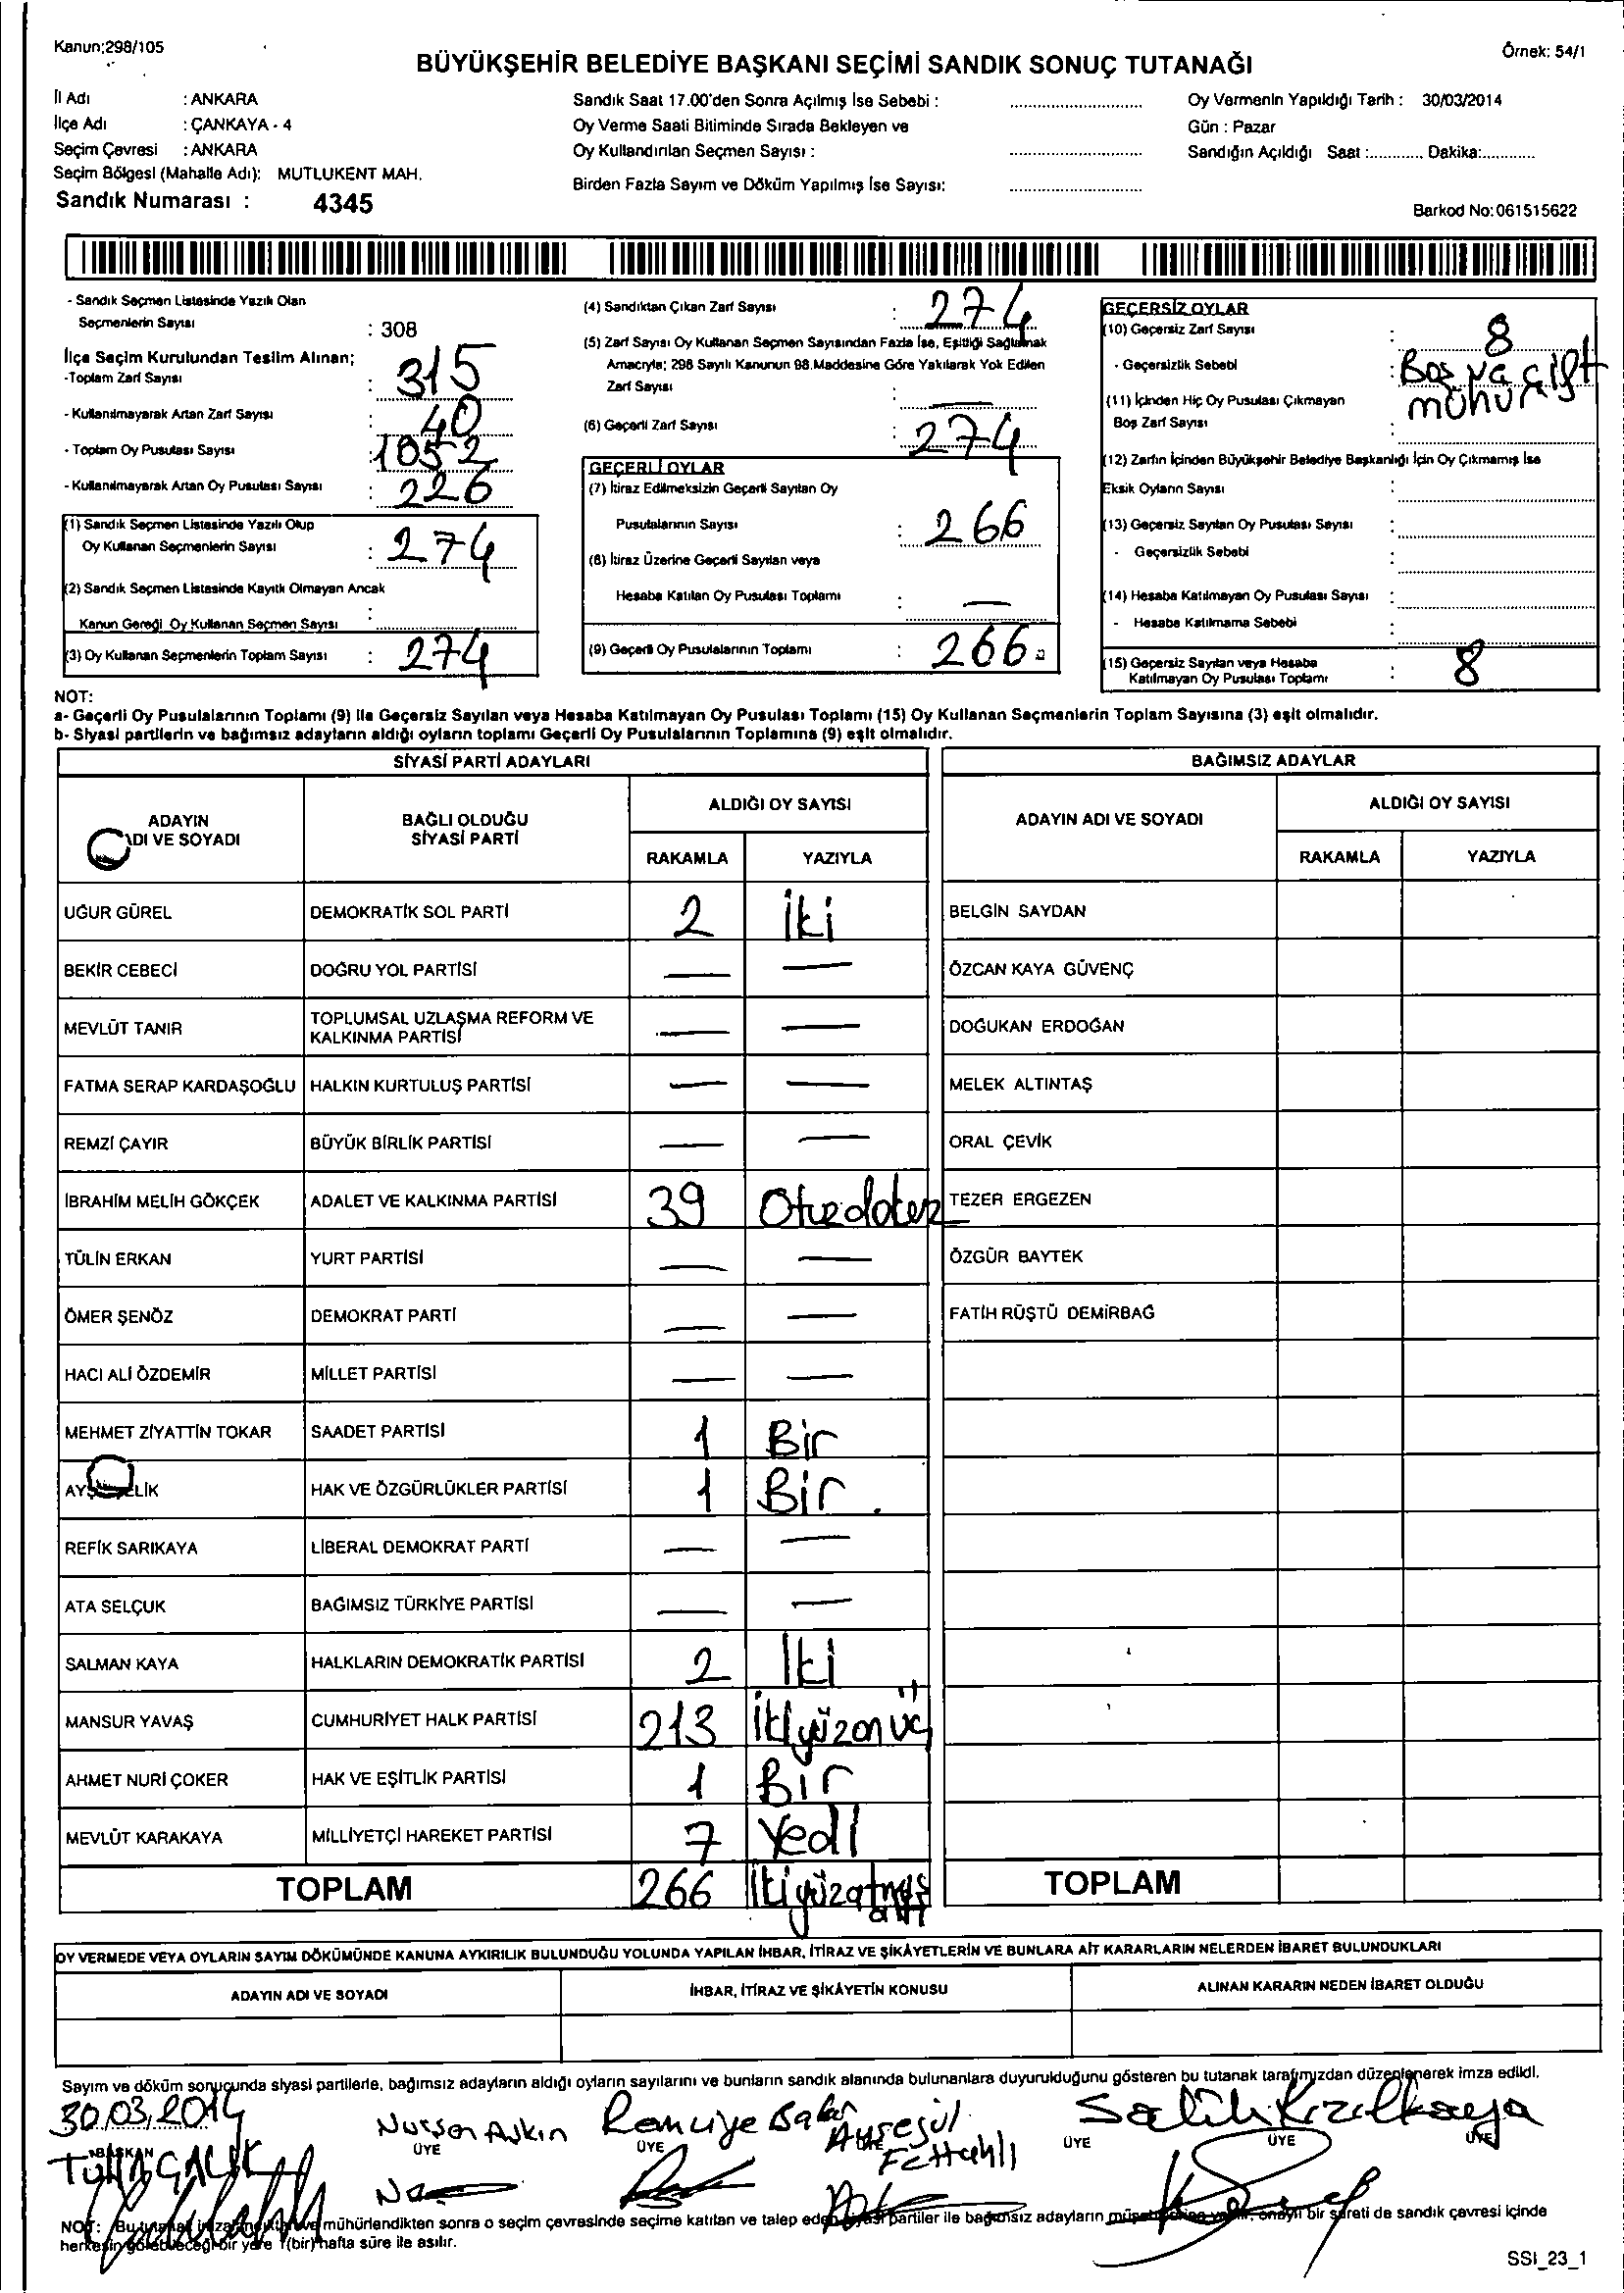 Kanun:298/105
Örnek: 54/1
BÜYÜKŞEHİR BELEDİYE BAŞKANI SEÇİMİ SANDIK SONUÇ TUTANAĞI
İl Adı : ANKARA
İlçe Adı : ÇANKAYA - 4
Seçim Çevresi : ANKARA
Seçim Bölgesi (Mahalle Adı): MUTLUKENT MAH.
Sandık Numarası : 4345
Sandık Saat 17.00'den Sonra Açılmış İse Sebebi :
Oy Verme Saati Bitiminde Sırada Bekleyen ve
Oy Kullandırılan Seçmen Sayısı :
Birden Fazla Sayım ve Döküm Yapılmış İse Sayısı:
Oy Vermenin Yapıldığı Tarih : 30/03/2014
Gün : Pazar
Sandığın Açıldığı Saat :............ Dakika:............
Barkod No:061515622
- Sandık Seçmen Listesinde Yazılı Olan
Seçmenlerin Sayısı : 308
İlçe Seçim Kurulundan Teslim Alınan;
-Toplam Zarf Sayısı : 315
- Kullanılmayarak Artan Zarf Sayısı : 40
- Toplam Oy Pusulası Sayısı : 1052
- Kullanılmayarak Artan Oy Pusulası Sayısı : 226
(1) Sandık Seçmen Listesinde Yazılı Olup
Oy Kullanan Seçmenlerin Sayısı : 274
(2) Sandık Seçmen Listesinde Kayıtlı Olmayan Ancak
Kanun Gereği Oy Kullanan Seçmen Sayısı :
(3) Oy Kullanan Seçmenlerin Toplam Sayısı : 274
(4) Sandıktan Çıkan Zarf Sayısı : 274
(5) Zarf Sayısı Oy Kullanan Seçmen Sayısından Fazla İse, Eşitliği Sağlamak
Amacıyla; 298 Sayılı Kanunun 98.Maddesine Göre Yakılarak Yok Edilen
Zarf Sayısı : —
(6) Geçerli Zarf Sayısı : 274
GEÇERLİ OYLAR
(7) İtiraz Edilmeksizin Geçerli Sayılan Oy
Pusulalarının Sayısı : 266
(8) İtiraz Üzerine Geçerli Sayılan veya
Hesaba Katılan Oy Pusulası Toplamı : —
(9) Geçerli Oy Pusulalarının Toplamı : 266
GEÇERSİZ OYLAR
(10) Geçersiz Zarf Sayısı : 8
- Geçersizlik Sebebi : Boş ya çift
mühür
(11) İçinden Hiç Oy Pusulası Çıkmayan
Boş Zarf Sayısı :
(12) Zarfın İçinden Büyükşehir Belediye Başkanlığı İçin Oy Çıkmamış İse
Eksik Oyların Sayısı :
(13) Geçersiz Sayılan Oy Pusulası Sayısı :
- Geçersizlik Sebebi :
(14) Hesaba Katılmayan Oy Pusulası Sayısı :
- Hesaba Katılmama Sebebi :
(15) Geçersiz Sayılan veya Hesaba
Katılmayan Oy Pusulası Toplamı : 8
NOT:
a- Geçerli Oy Pusulalarının Toplamı (9) ile Geçersiz Sayılan veya Hesaba Katılmayan Oy Pusulası Toplamı (15) Oy Kullanan Seçmenlerin Toplam Sayısına (3) eşit olmalıdır.
b- Siyasi partilerin ve bağımsız adayların aldığı oyların toplamı Geçerli Oy Pusulalarının Toplamına (9) eşit olmalıdır.
SİYASİ PARTİ ADAYLARI
ADAYIN ADI VE SOYADI
BAĞLI OLDUĞU SİYASİ PARTİ
ALDIĞI OY SAYISI
RAKAMLA YAZIYLA
UĞUR GÜREL DEMOKRATİK SOL PARTİ 2 İki
BEKİR CEBECİ DOĞRU YOL PARTİSİ — —
MEVLÜT TANIR TOPLUMSAL UZLAŞMA REFORM VE
KALKINMA PARTİSİ — —
FATMA SERAP KARDAŞOĞLU HALKIN KURTULUŞ PARTİSİ — —
REMZİ ÇAYIR BÜYÜK BİRLİK PARTİSİ — —
İBRAHİM MELİH GÖKÇEK ADALET VE KALKINMA PARTİSİ 39
TÜLİN ERKAN YURT PARTİSİ — —
ÖMER ŞENÖZ DEMOKRAT PARTİ — —
HACI ALİ ÖZDEMİR MİLLET PARTİSİ — —
MEHMET ZİYATTİN TOKAR SAADET PARTİSİ 1 Bir
HAK VE ÖZGÜRLÜKLER PARTİSİ 1 Bir.
REFİK SARIKAYA LİBERAL DEMOKRAT PARTİ — —
ATA SELÇUK BAĞIMSIZ TÜRKİYE PARTİSİ — —
SALMAN KAYA HALKLARIN DEMOKRATİK PARTİSİ 2 İki
MANSUR YAVAŞ CUMHURİYET HALK PARTİSİ 213 İkiyüzonüç
AHMET NURİ ÇOKER HAK VE EŞİTLİK PARTİSİ 1 Bir
MEVLÜT KARAKAYA MİLLİYETÇİ HAREKET PARTİSİ 7 Yedi
TOPLAM 266 İkiyüzatmış
altı
BAĞIMSIZ ADAYLAR
ADAYIN ADI VE SOYADI
ALDIĞI OY SAYISI
RAKAMLA YAZIYLA
BELGİN SAYDAN
ÖZCAN KAYA GÜVENÇ
DOĞUKAN ERDOĞAN
MELEK ALTINTAŞ
ORAL ÇEVİK
TEZER ERGEZEN
ÖZGÜR BAYTEK
FATİH RÜŞTÜ DEMİRBAĞ
TOPLAM
OY VERMEDE VEYA OYLARIN SAYIM DÖKÜMÜNDE KANUNA AYKIRILIK BULUNDUĞU YOLUNDA YAPILAN İHBAR, İTİRAZ VE ŞİKÂYETLERİN VE BUNLARA AİT KARARLARIN NELERDEN İBARET BULUNDUKLARI
ADAYIN ADI VE SOYADI
İHBAR, İTİRAZ VE ŞİKÂYETİN KONUSU
ALINAN KARARIN NEDEN İBARET OLDUĞU
Sayım ve döküm sonucunda siyasi partilerle, bağımsız adayların aldığı oyların sayılarını ve bunların sandık alanında bulunanlara duyurulduğunu gösteren bu tutanak tarafımızdan düzenlenerek imza edildi.
30.03.2014
BAŞKAN
Nurşen Aşkın
ÜYE
Remziye
ÜYE
Ayşegül
Fettahlı
ÜYE
ÜYE
Salih Kızılkaya
ÜYE
ÜYE
NOT: Bu tutanak imzalanıp mühürlendikten sonra o seçim çevresinde seçime katılan ve talep eden siyasi partiler ile bağımsız adayların müşahitlerine verilir, onaylı bir sureti de sandık çevresi içinde
herkesin görebileceği bir yere 1(bir) hafta süre ile asılır.
SSI_23_1